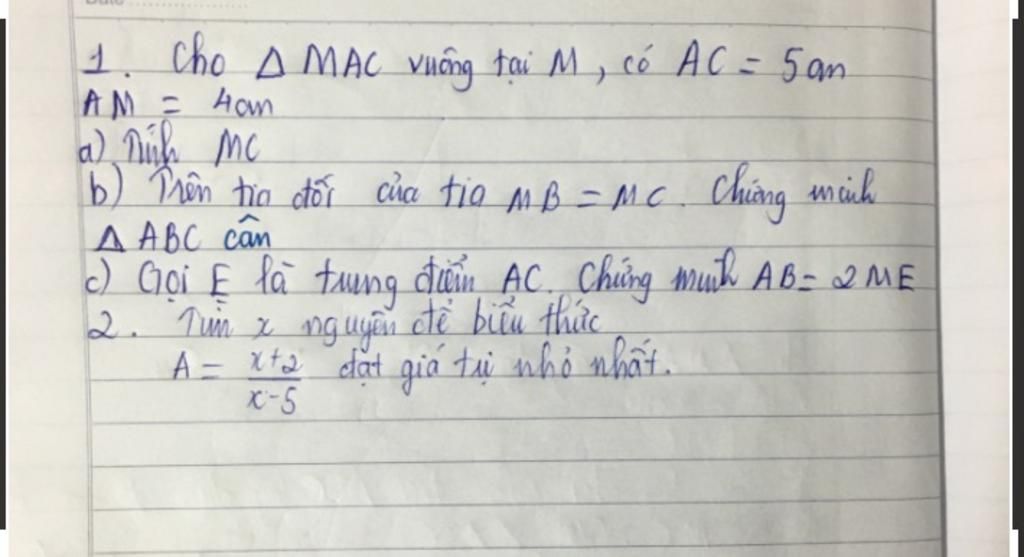 1. Cho Δ MAC vuông tại M, có AC = 5cm
AM = 4cm
a) Tính MC
b) Trên tia đối của tia MB = MC. Chứng minh
Δ ABC cân
c) Gọi E là trung điểm AC. Chứng minh AB = 2ME
2. Tìm x nguyên để biểu thức
A = \frac{x+2}{x-5} đạt giá trị nhỏ nhất.